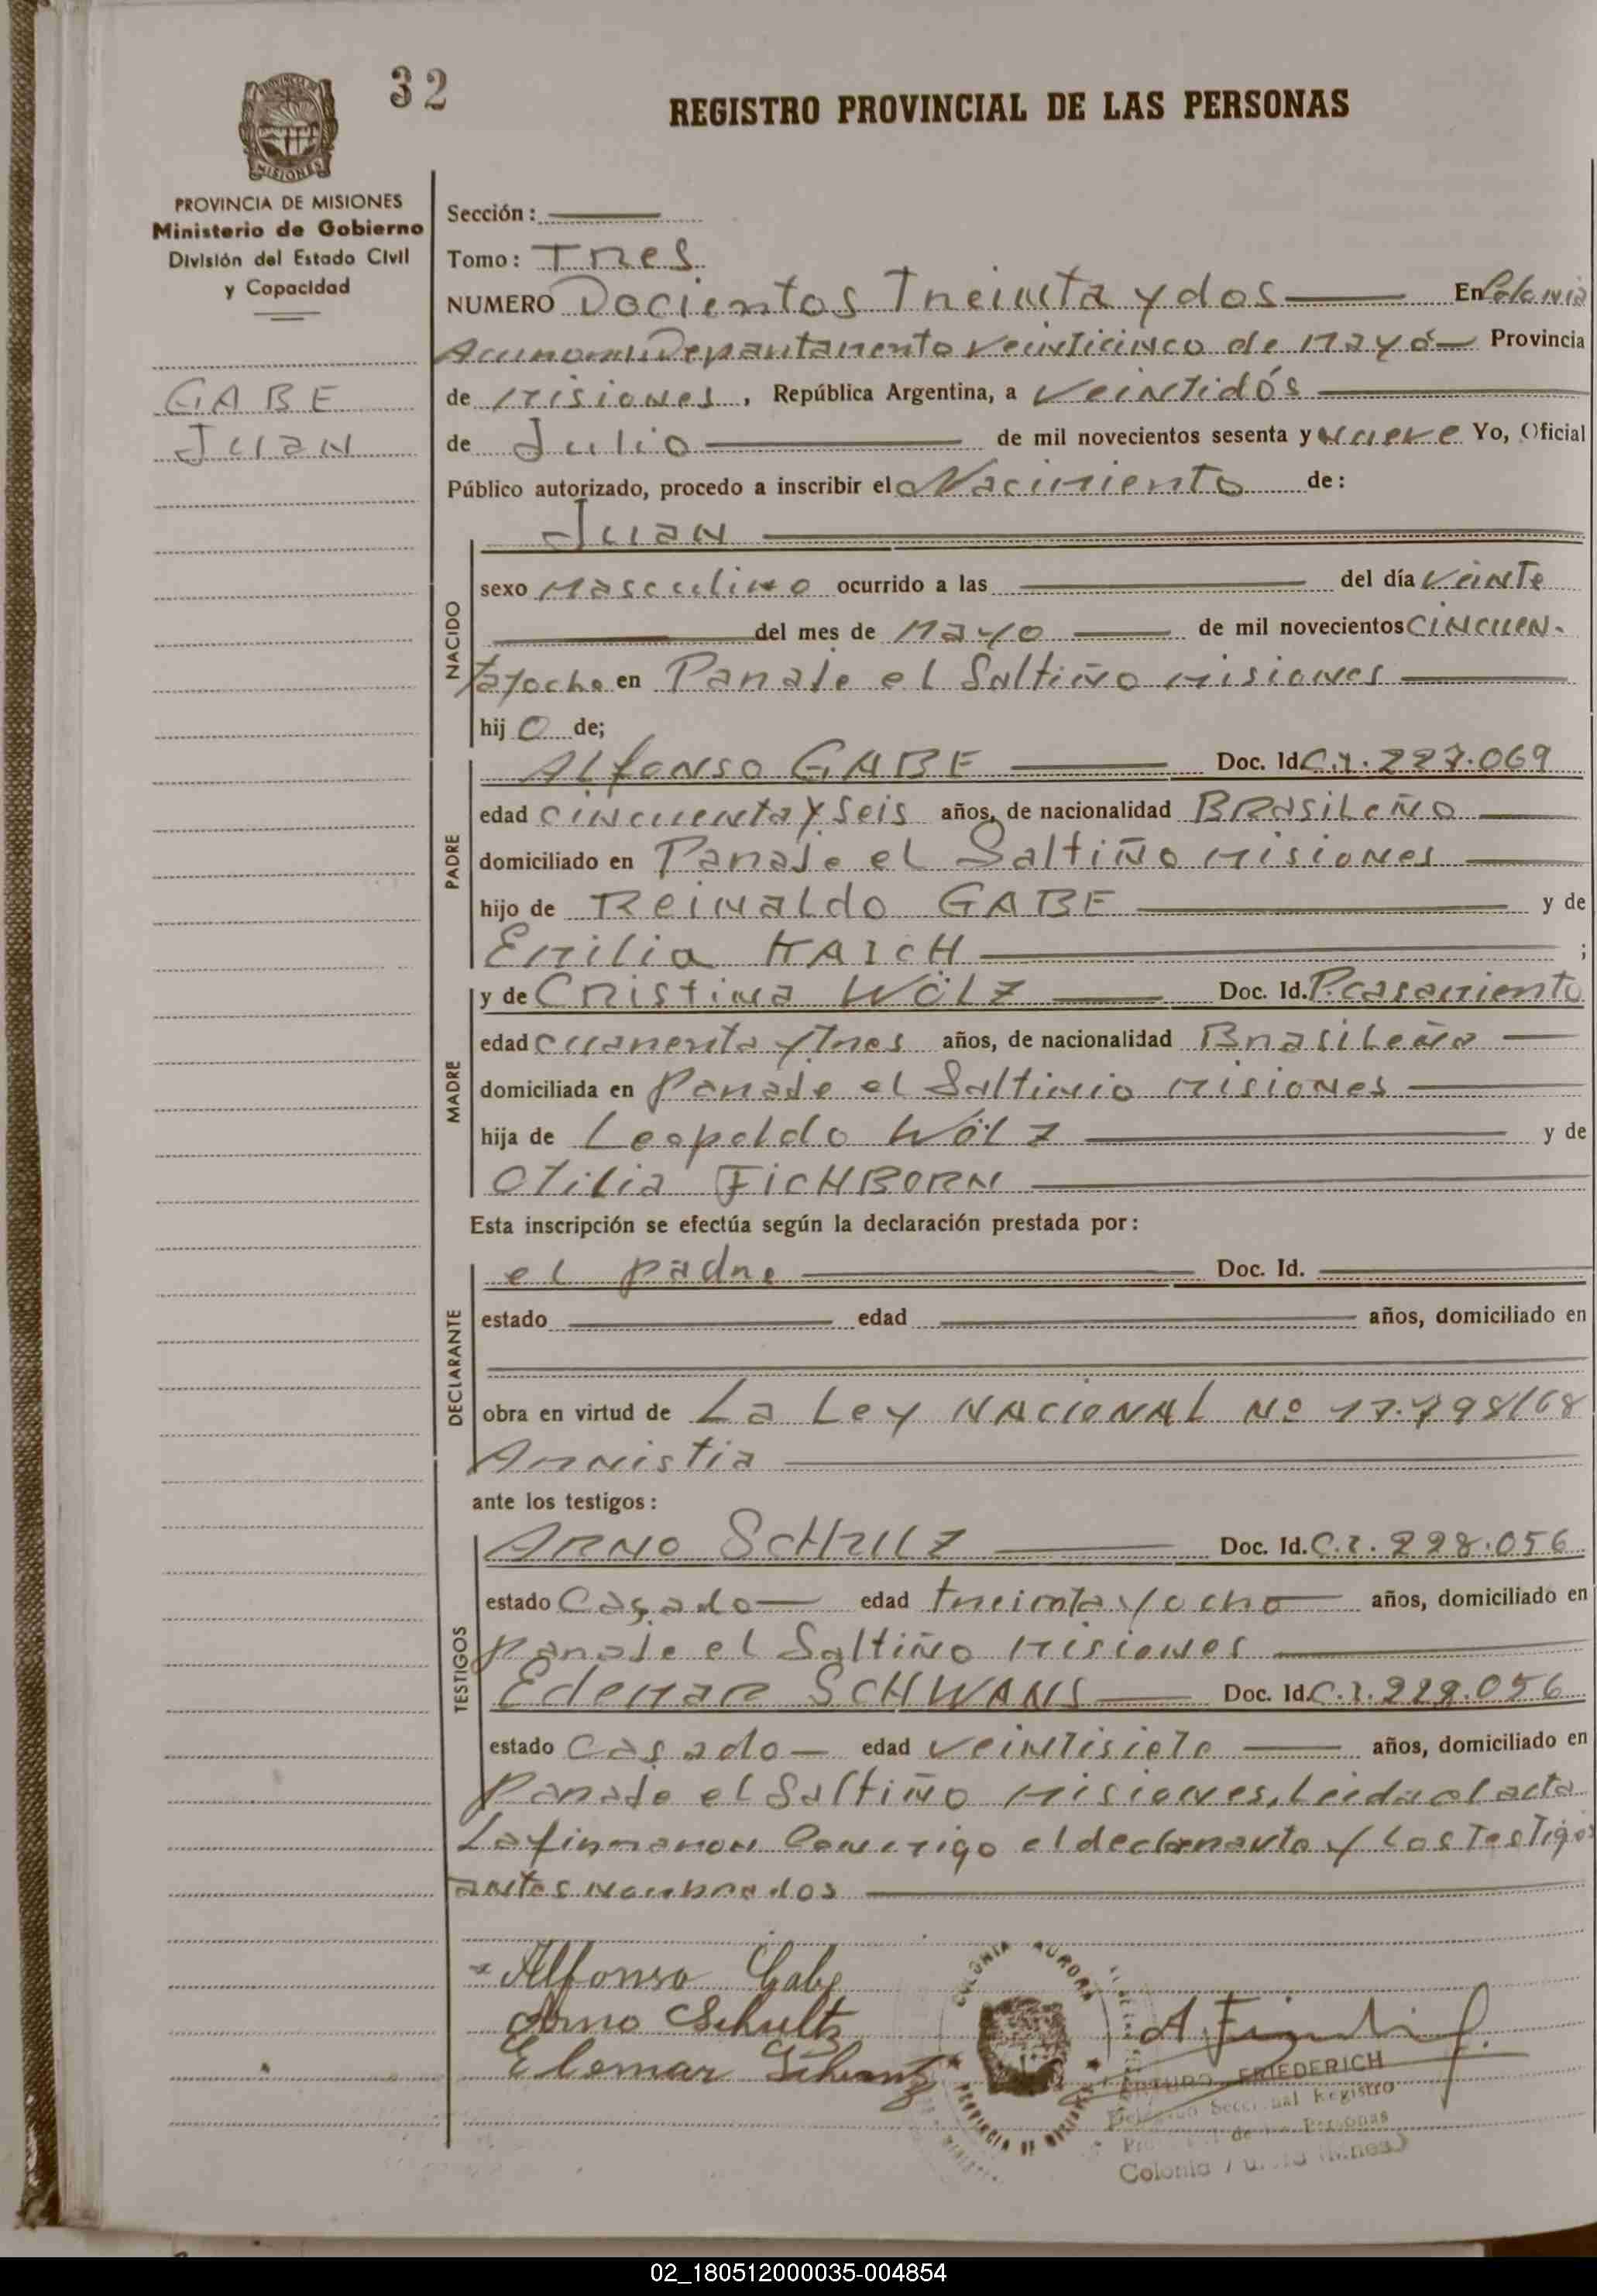 32
REGISTRO PROVINCIAL DE LAS PERSONAS
PROVINCIA DE MISIONES
Ministerio de Gobierno
División del Estado Civil
y Capacidad
GABE
Juan
Sección :
Tomo : Tres
NUMERO Docientos Treinta y dos En Colonia
Departamento Veinticinco de Mayo Provincia
de Misiones , República Argentina, a Veintidós
de Julio de mil novecientos sesenta y nueve Yo, Oficial
Público autorizado, procedo a inscribir el Nacimiento de :
Juan
NACIDO
sexo Masculino ocurrido a las del día Veinte
del mes de Mayo de mil novecientos CINCUEN-
tayocho en Paraje el Saltiño Misiones
hij o de;
PADRE
Alfonso GABE Doc. Id. C.I. 227.069
edad cincuenta y seis años, de nacionalidad BRasiLeÑo
domiciliado en Paraje el Saltiño Misiones
hijo de ReinaLdo GABE y de
Emilia HAICH ;
MADRE
y de Cristina WÖLZ Doc. Id. P.casamiento
edad cuarenta y tres años, de nacionalidad BrasiLeña
domiciliada en Paraje el Saltiño Misiones
hija de Leopoldo WÖLZ y de
Otilia EICHBORN
Esta inscripción se efectúa según la declaración prestada por :
DECLARANTE
el padre Doc. Id.
estado edad años, domiciliado en
obra en virtud de La Ley NACIONAL Nº 17.798/68
Amnistia
ante los testigos :
TESTIGOS
ARNO SCHULZ Doc. Id. C.I. 228.056
estado Casado edad treinta y ocho años, domiciliado en
Paraje el Saltiño Misiones
Edemar SCHWANS Doc. Id. C.I. 229.056
estado Casado edad veintisiete años, domiciliado en
Paraje el Saltiño Misiones. Leida el acta
La firmaron Conmigo el declarante y Los Testigos
antes nombrados
Alfonso Gabe
Arno Schultz
Elemar
COLONIA AURORA
PROVINCIA DE MISIONES
ARTURO FRIEDERICH
Registro
de las Personas
Colonia
02_180512000035-004854